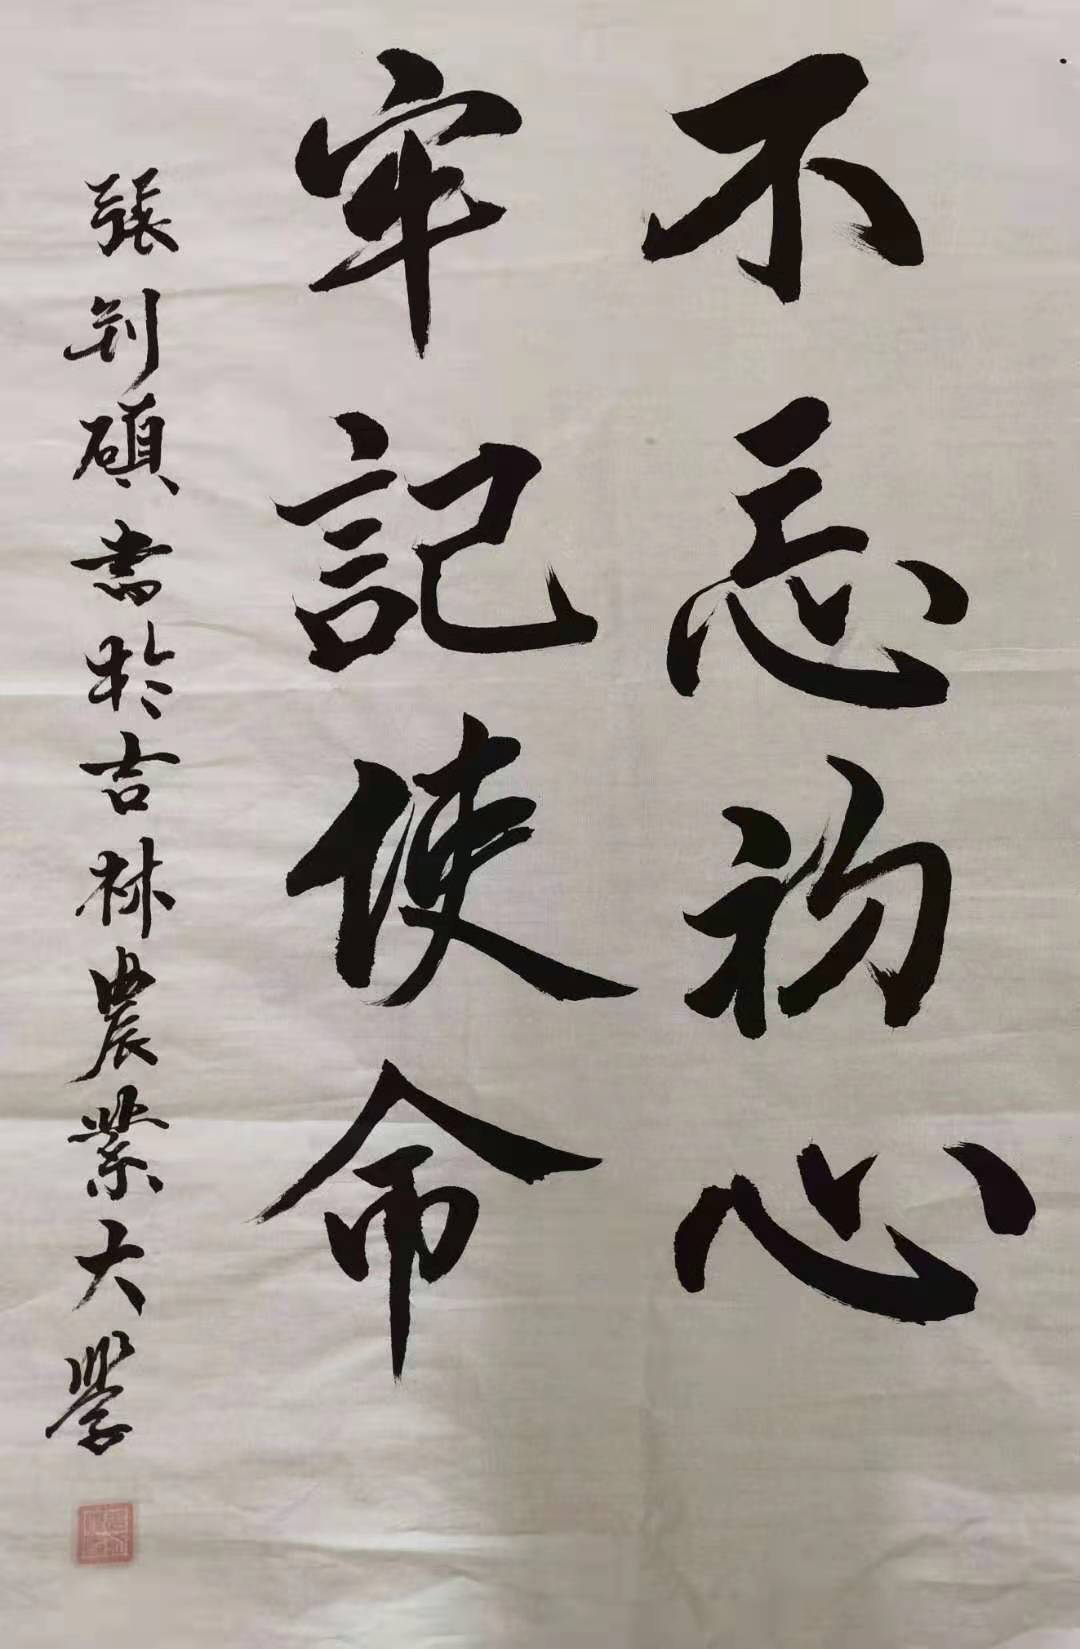 不忘初心
牢記使命
張碩書於吉林農業大學